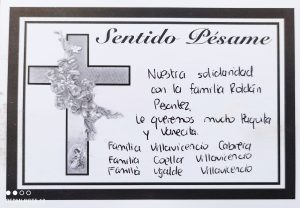 Sentido Pésame
Nuestra solidaridad
con la familia Roldán
Pesantez.
Le queremos mucho Paquita
y Vanecita.
Familia Villavicencio Cabrera
Familia Cuellar Villavicencio
Familia Ugalde Villavicencio